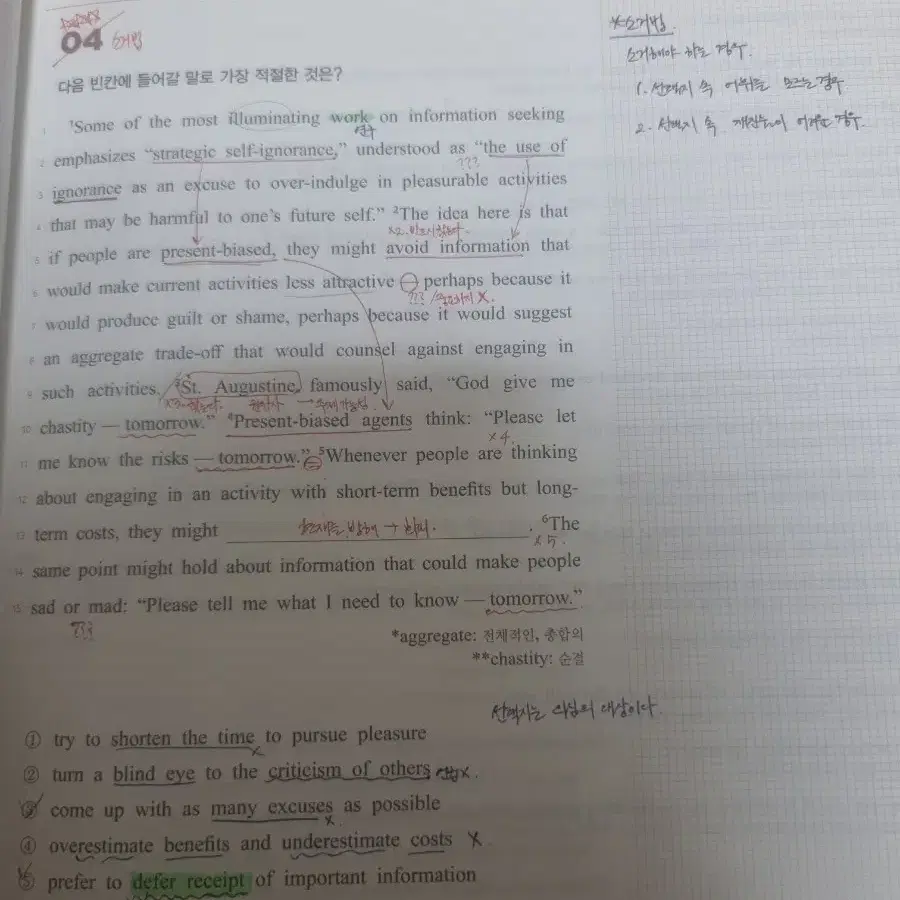 04 소거법
다음 빈칸에 들어갈 말로 가장 적절한 것은?
1 ¹Some of the most illuminating work on information seeking
연구
2 emphasizes “strategic self-ignorance,” understood as “the use of
???
3 ignorance as an excuse to over-indulge in pleasurable activities
4 that may be harmful to one’s future self.” ²The idea here is that
5 if people are present-biased, they might avoid information that
6 would make current activities less attractive — perhaps because it
??? / 중요하지 X.
7 would produce guilt or shame, perhaps because it would suggest
8 an aggregate trade-off that would counsel against engaging in
9 such activities. ³St. Augustine famously said, “God give me
10 chastity — tomorrow.” ⁴Present-biased agents think: “Please let
x4.
11 me know the risks — tomorrow.” ⁵Whenever people are thinking
12 about engaging in an activity with short-term benefits but long-
13 term costs, they might . ⁶The
x5.
14 same point might hold about information that could make people
15 sad or mad: “Please tell me what I need to know — tomorrow.”
???
*aggregate: 전체적인, 총합의
**chastity: 순결
선택지는 의심의 대상이다.
① try to shorten the time to pursue pleasure
x
② turn a blind eye to the criticism of others x.
③ come up with as many excuses as possible
x.
④ overestimate benefits and underestimate costs x
⑤ prefer to defer receipt of important information
*소거법.
소거해야 하는 경우.
1. 선택지 속 어휘를 모르는 경우
2. 선택지 속 개념이 어려운 경우.